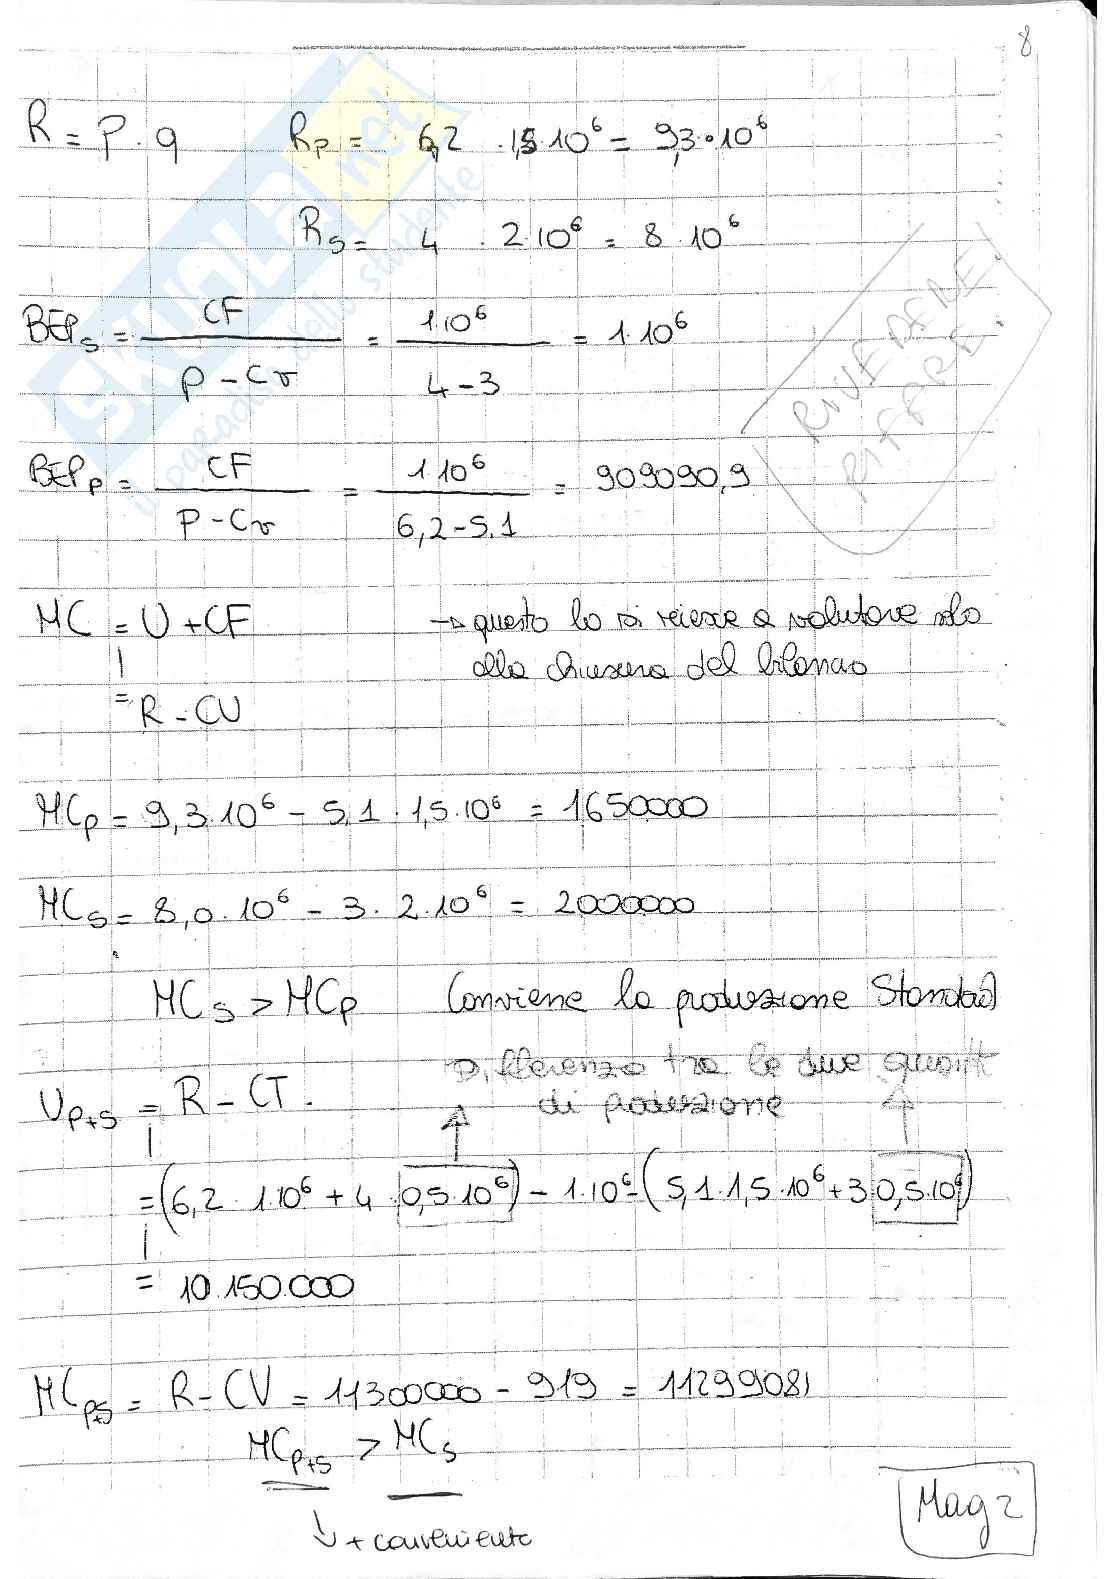 8
R = p · q    R_P = 6,2 · 1,5·10⁶ = 9,3·10⁶
R_S = 4 · 2·10⁶ = 8·10⁶
BEP_S = CF / (P - Cv) = 1·10⁶ / (4-3) = 1·10⁶
RIVEDERE CIFRE!
BEP_P = CF / (P - Cv) = 1·10⁶ / (6,2-5,1) = 909090,9
MC = U + CF → questo lo si riesce a valutare solo
alla chiusura del bilancio
= R - CV
MC_P = 9,3·10⁶ - 5,1 · 1,5·10⁶ = 1650000
MC_S = 8,0·10⁶ - 3·2·10⁶ = 2000000
MC_S > MC_P Conviene la produzione Standard
Differenza tra le due quant
di produzione
U_P+S = R - CT.
= (6,2 · 1·10⁶ + 4 · 0,5·10⁶) - 1·10⁶ - (5,1·1,5·10⁶ + 3 0,5·10⁶)
= 10.150.000
MC_P+S = R - CV = 11300000 - 919 = 11299081
MC_P+S > MC_S
↓ + conveniente
Mag 2
SKUOLA.net
il paradiso dello studente